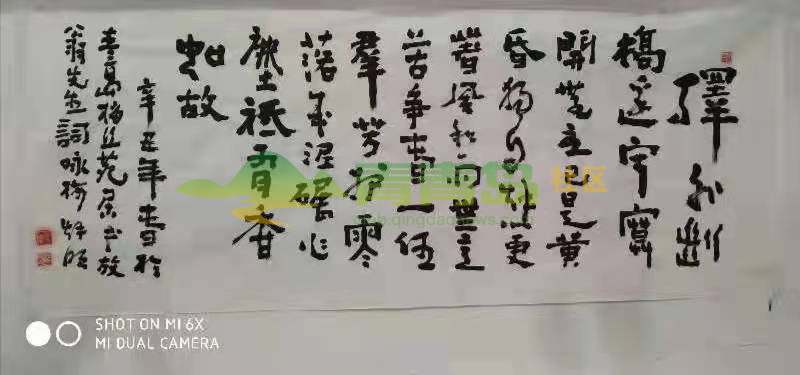 驛外斷
橋邊寂寞
開無主已是黄
昏獨自愁更
著風和雨無意
苦爭春一任
羣芳妒零
落成泥碾作
塵祗有香
如故
辛丑年春於
青島梅丘苑書放
翁先生詞咏梅
青青岛社区
club.qingdaonews.com
SHOT ON MI 6X
MI DUAL CAMERA